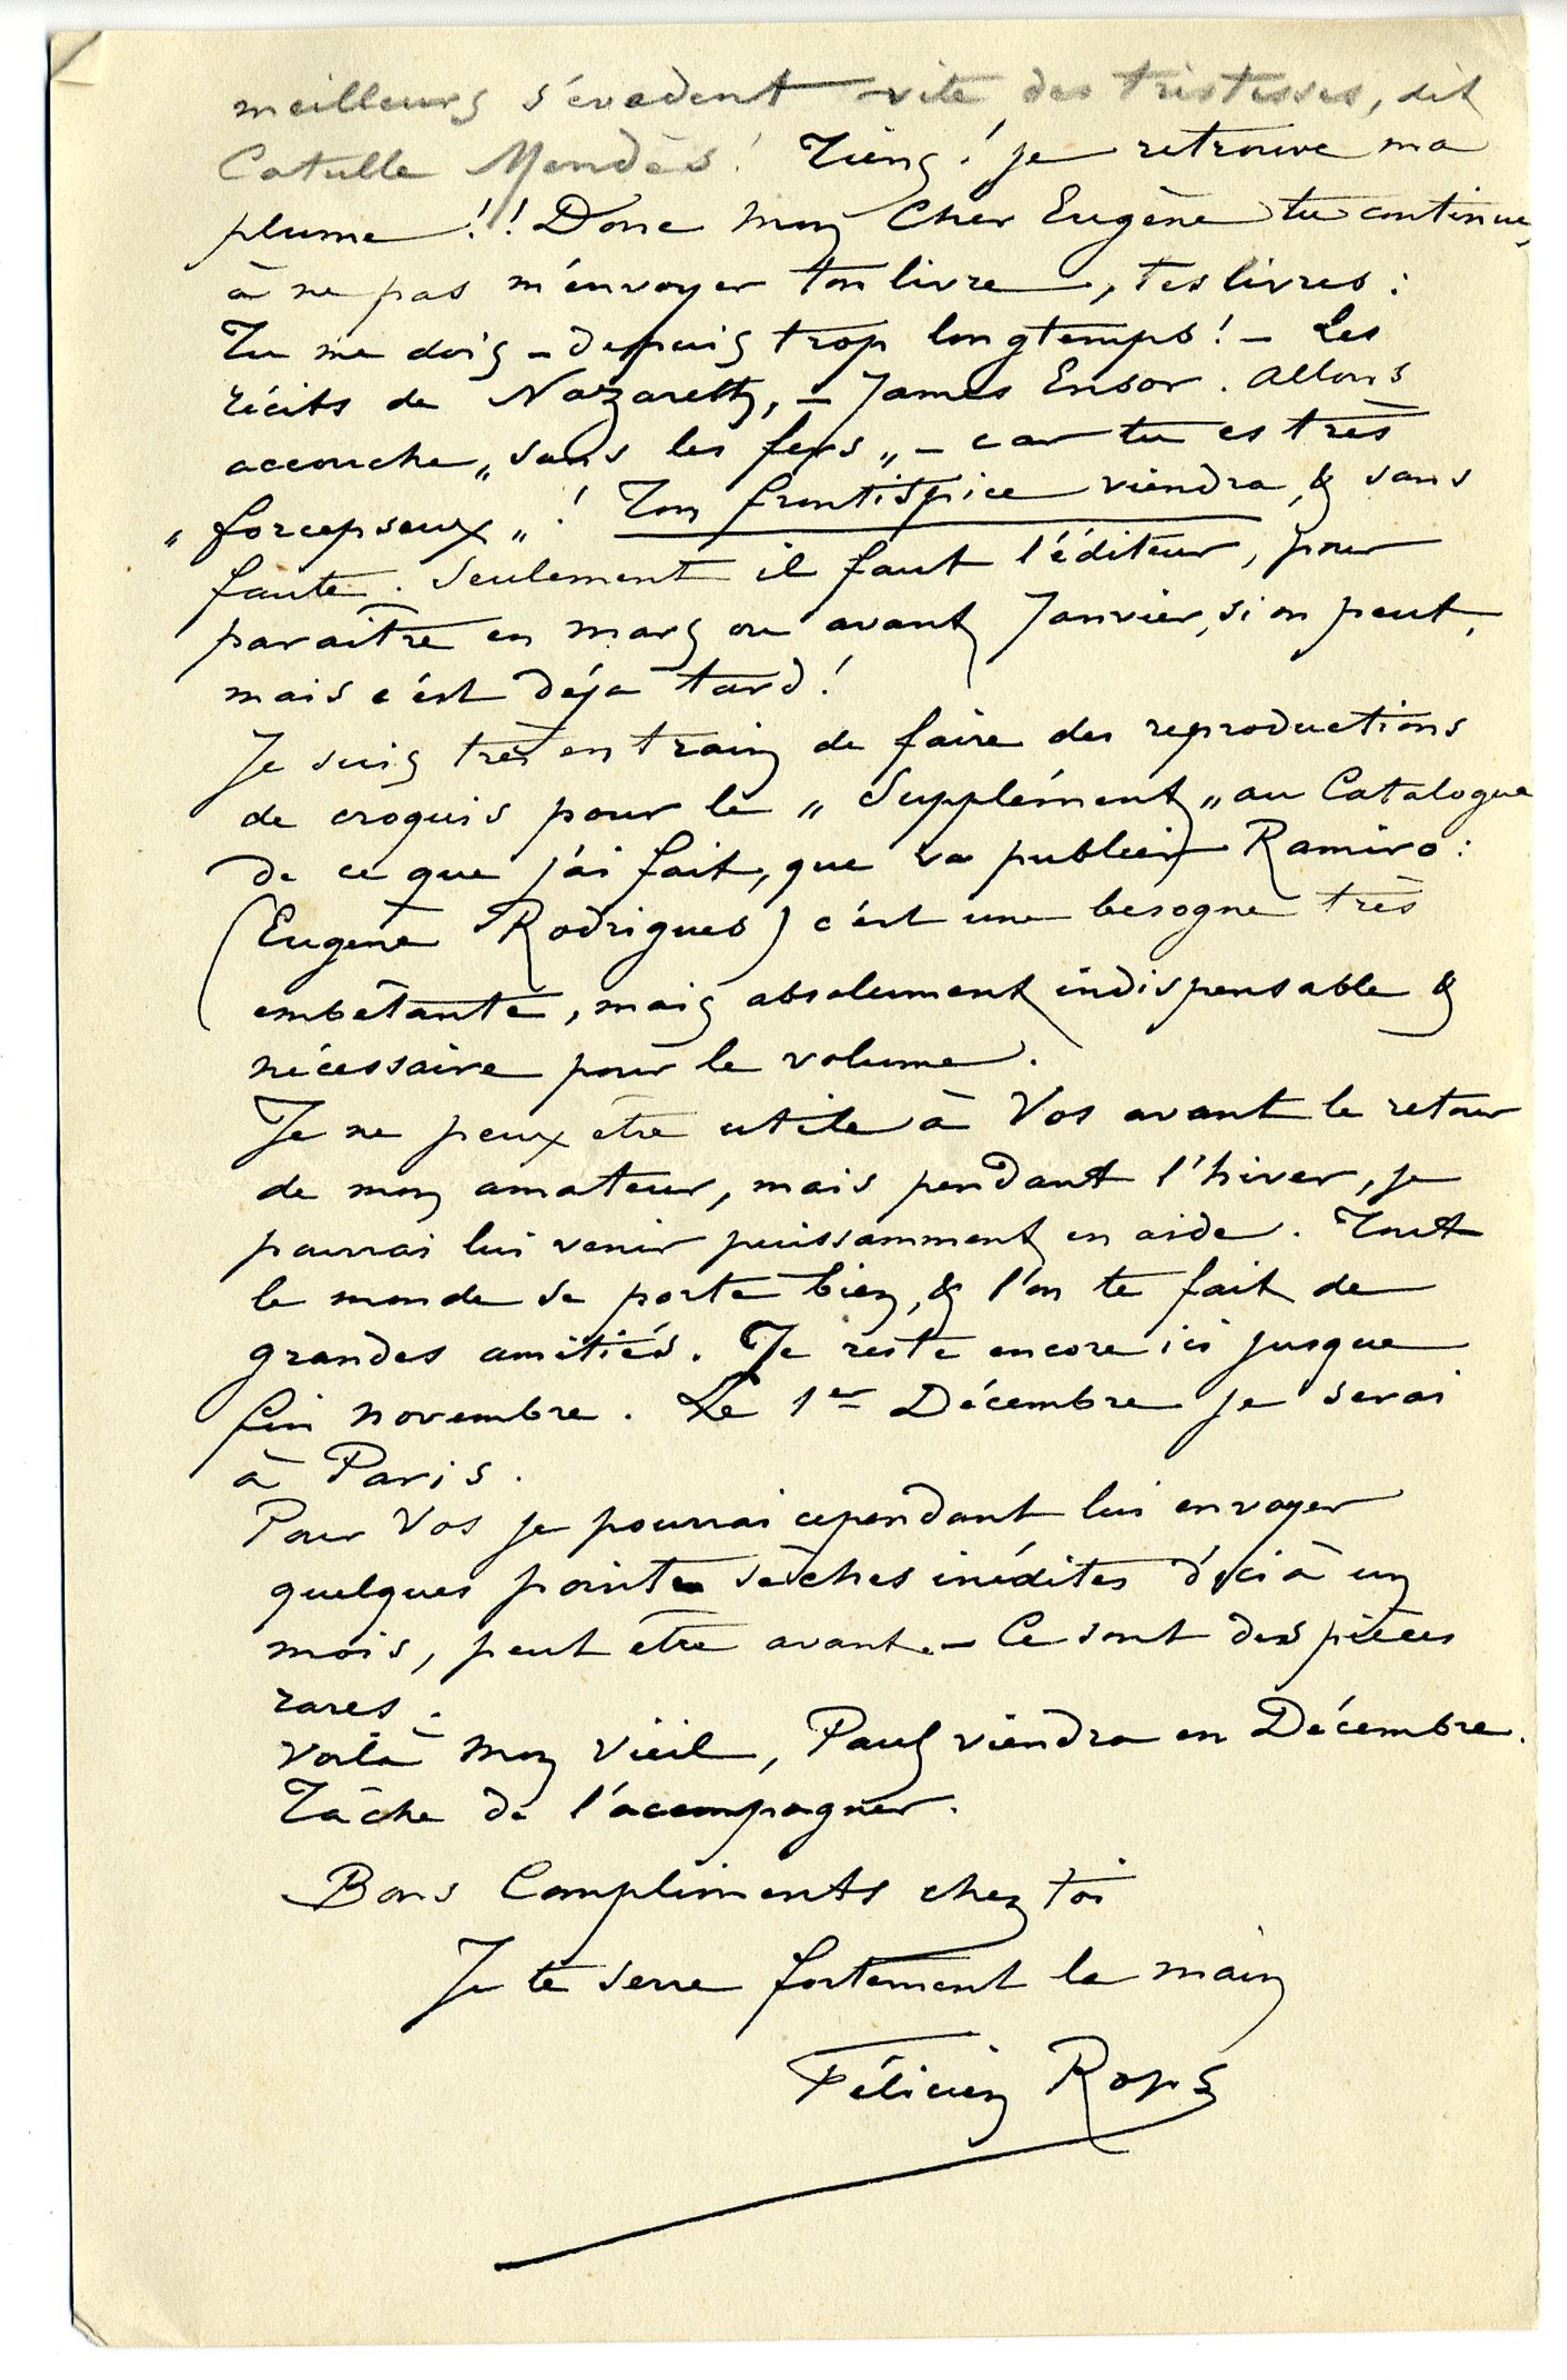 meilleurs s'évadent vite des tristesses, dit
Catulle Mendès! Tiens! je retrouve ma
plume!! Donc mon Cher Eugène tu continues
à ne pas m'envoyer ton livre, tes livres:
Tu me dois – depuis trop longtemps! – Les
récits de Nazareth, – James Ensor. Allons
accouche „sans les fers„ – car tu es très
„forcepseux„! Ton frontispice viendra, & sans
faute. Seulement il faut l'éditeur, pour
paraître en mars ou avant Janvier, si on peut,
mais c'est déja tard!
Je suis très en train de faire des reproductions
de croquis pour le „Supplément„ au Catalogue
de ce que j'ai fait, que va publier Ramiro:
(Eugène Rodrigues) c'est une besogne très
embêtante, mais absolument indispensable &
nécessaire pour le volume.
Je ne peux etre utile à Vos avant le retour
de mon amateur, mais pendant l'hiver, je
pourrai lui venir puissamment en aide. Tout
le monde se porte bien, & l'on te fait de
grandes amitiés. Je reste encore ici jusque
fin novembre. Le 1er Décembre je serai
à Paris.
Pour Vos je pourrai cependant lui envoyer
quelques pointes sèches inédites d'ici à un
mois, peut etre avant. – Ce sont des pièces
rares.
Voilà mon vieil, Paul viendra en Décembre.
Tâche de l'accompagner.
Bons Compliments chez toi
Je te serre fortement la main
Félicien Rops